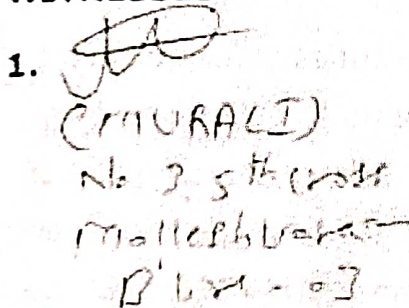 1.
(MURALI)
No 3 5th Cross
Malleshwaram
B'lore - 03